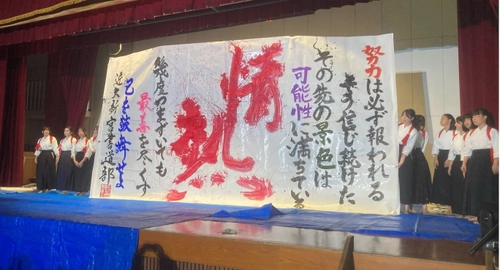 努力は必ず報われる
そう信じ続けた
その先の景色は
可能性に満ちている
情熱
幾度つまずいても
最善を尽くす
己を鼓舞せよ
書道部